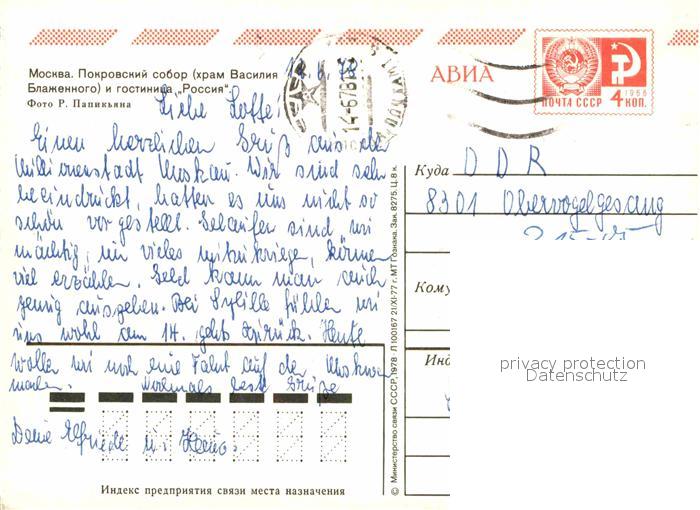 Москва. Покровский собор (храм Василия
Блаженного) и гостиница „Россия“.
Фото Р. Папикьяна
Liebe Lotte!
Einen herzlichen Gruß aus der
Millionenstadt Moskau. Wir sind sehr
beeindruckt, hatten es uns nicht so
schön vorgestellt. Gelaufen sind wir
mächtig, um vieles mitzukriegen, können
viel erzählen. Geld kann man auch
genug ausgeben. Bei Sybille fühlen wir
uns wohl am 14. gehts zurück. Heute
wollen wir noch eine Fahrt auf der Moskwa
machen. Nochmals beste Grüße
Deine Elfriede u. Heinz.
Индекс предприятия связи места назначения
© Министерство связи СССР, 1978 Л 100167 21/XI-77 г. МТ Гознака. Зак. 8275. Ц. 8 к.
АВИА
ПОЧТА СССР
1966
4 КОП.
Куда DDR
8301 Obervogelgesang
Кому
Инд
privacy protection
Datenschutz